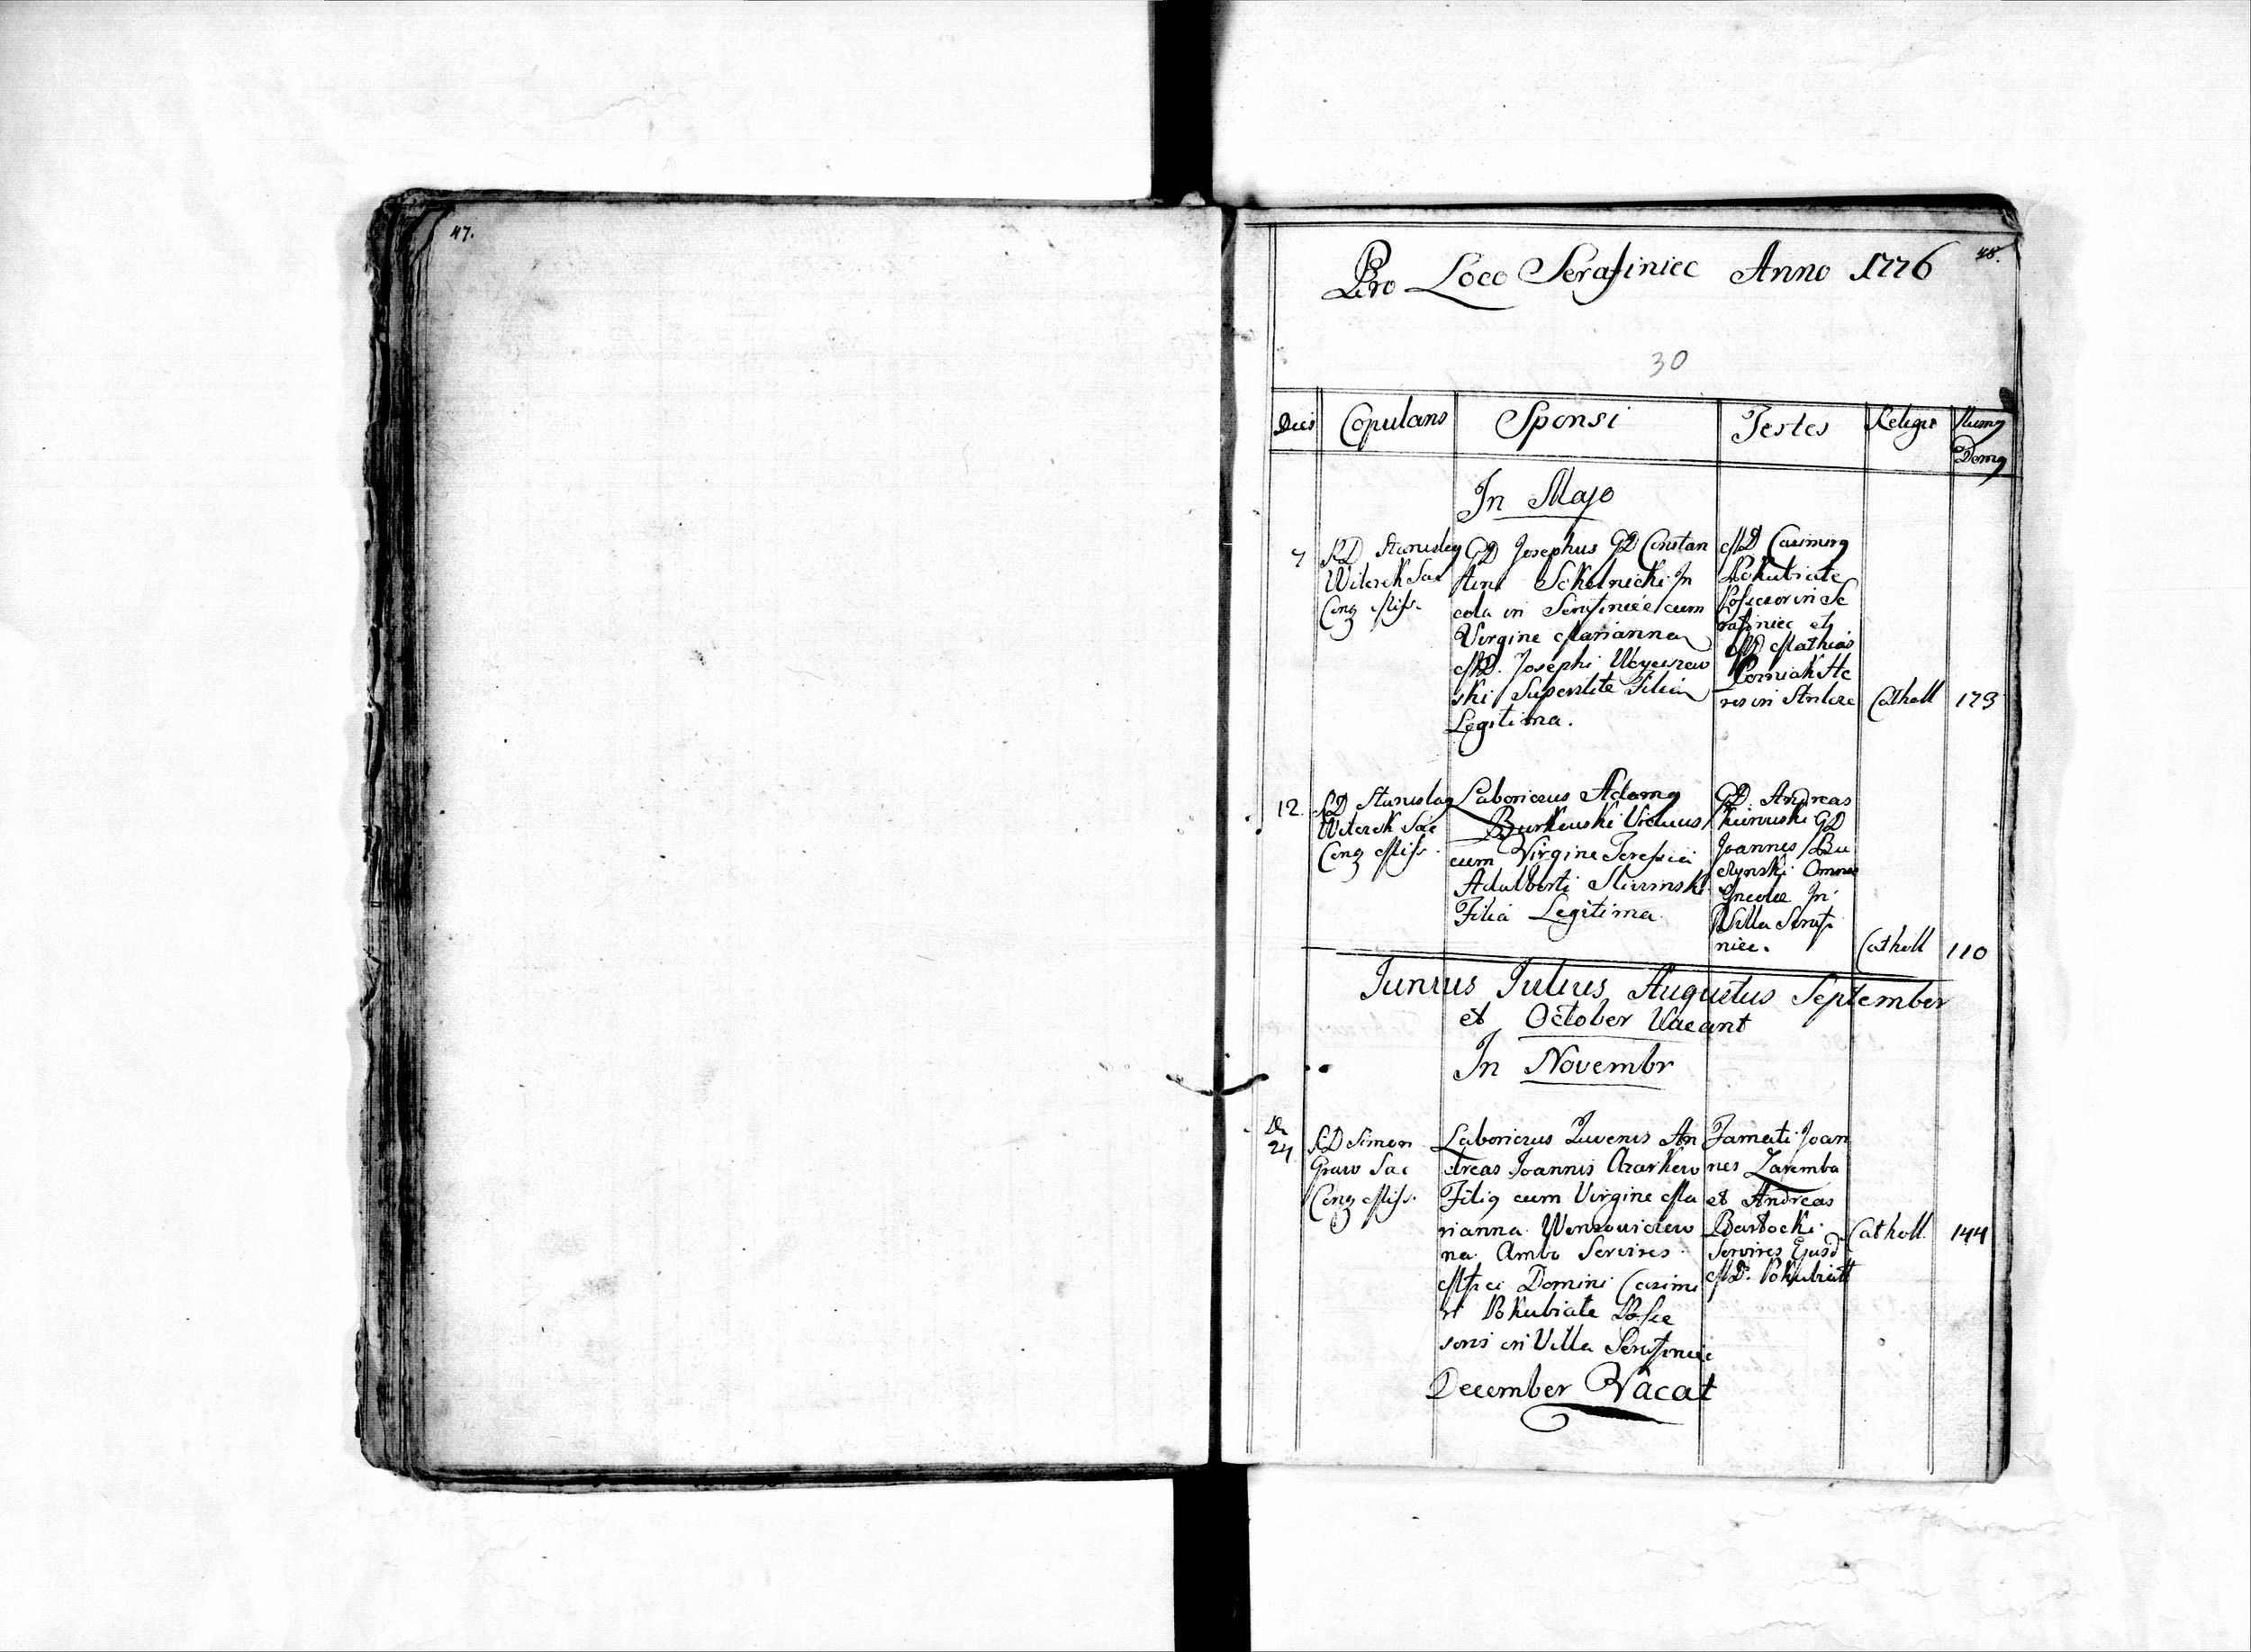 47.
48.
Pro Loco Serafiniec Anno 1776
30
Dies Copulans Sponsi Testes Religio Numq
Domq
In Majo
7
RD Stanislaq
Witerek Sac
Cong Miss.
GD Josephus GD Constan
tini Sokolnicki In
cola in Serafiniec cum
Virgine Marianna
MD. Josephi
ski Superstite Filia
Legitima.
MD Casimirq
Pokubiate
Possessor in Se
rafiniec et
MD Mathias
He
res in
Catholl 173
12.
RD Stanislaq
Witerek Sac
Cong Miss.
Laboriosus Adamq
Burkowski Viduus
cum Virgine Teressia
Adalberti
Filia Legitima.
GD. Andreas
GD
Joannes Bu
dzynski Omnes
Incolae In
Villa Serafi
niec.
Catholl 110
Junius Julius Augustus September
et October Vacant
In Novembr
24
RD Simon
Graw Sac
Cong Miss.
Laboriosus Juvenis An
dreas Joannis Czarkow
Filiq cum Virgine Ma
rianna
na Ambo Servires
Mfici Domini Casimi
ri Pokubiate Posse
soris in Villa Serafiniec
Famati Joan
nes Zaremba
et Andreas
Bartocki
Servires Ejusd
MD. Pokubiatt
Catholl. 144
December Vacat